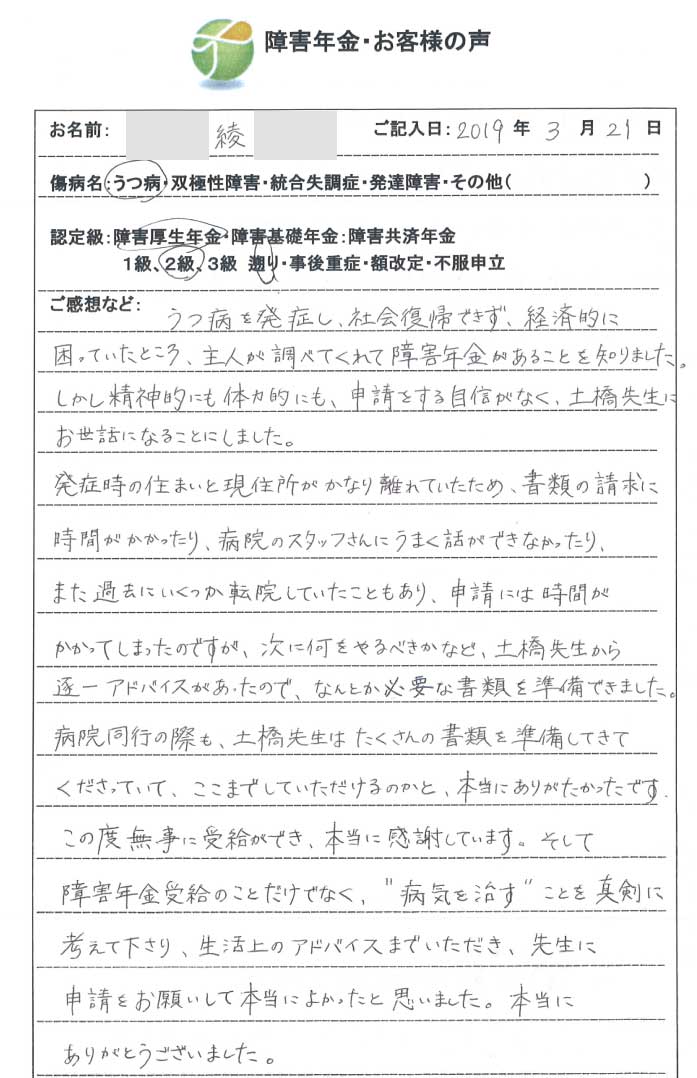 障害年金・お客様の声
お名前： 綾 ご記入日：2019 年 3 月 21 日
傷病名：うつ病・双極性障害・統合失調症・発達障害・その他（ ）
認定級：障害厚生年金・障害基礎年金：障害共済年金
1級、2級、3級 遡り・事後重症・額改定・不服申立
ご感想など： うつ病を発症し、社会復帰できず、経済的に
困っていたところ、主人が調べてくれて障害年金があることを知りました。
しかし精神的にも体力的にも、申請をする自信がなく、土橋先生に
お世話になることにしました。
発症時の住まいと現住所がかなり離れていたため、書類の請求に
時間がかかったり、病院のスタッフさんにうまく話ができなかったり、
また過去にいくつか転院していたこともあり、申請には時間が
かかってしまったのですが、次に何をやるべきかなど、土橋先生から
逐一アドバイスがあったので、なんとか必要な書類を準備できました。
病院同行の際も、土橋先生はたくさんの書類を準備してきて
くださっていて、ここまでしていただけるのかと、本当にありがたかったです.
この度無事に受給ができ、本当に感謝しています。そして
障害年金受給のことだけでなく、"病気を治す"ことを真剣に
考えて下さり、生活上のアドバイスまでいただき、先生に
申請をお願いして本当によかったと思いました。本当に
ありがとうございました。